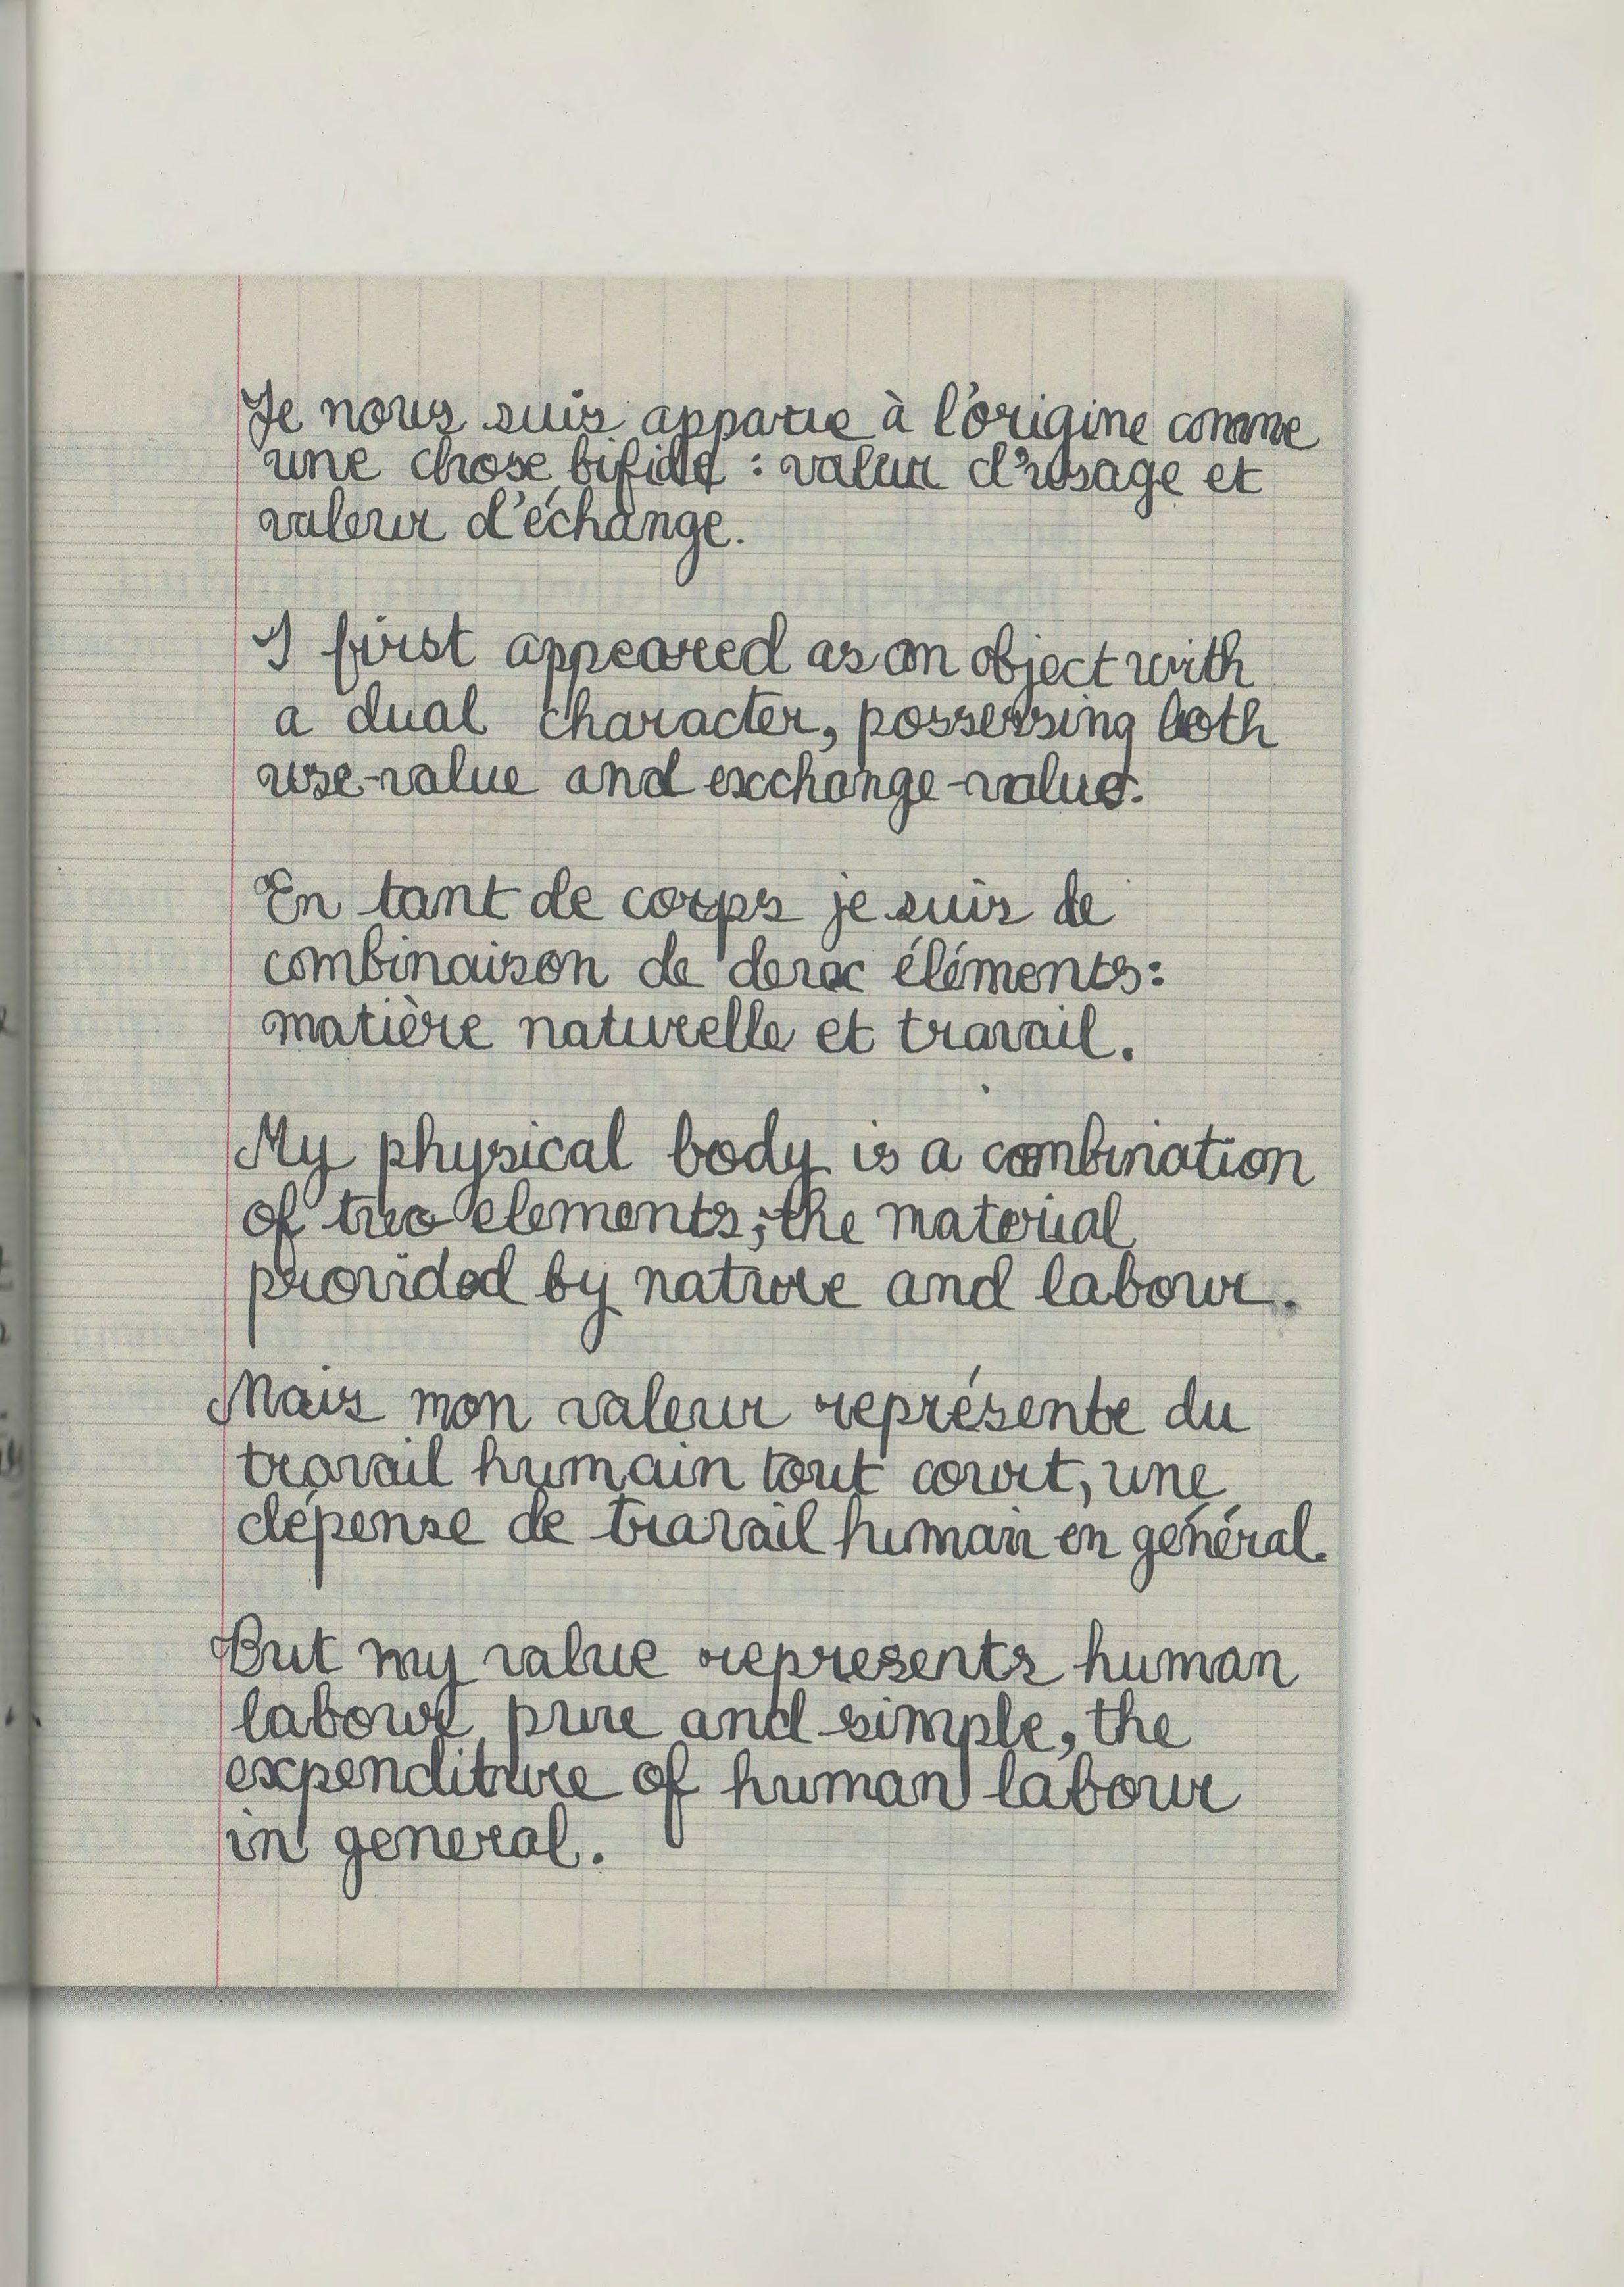 Je nous suis apparue à l'origine comme
une chose bifide : valeur d'usage et
valeur d'échange.
I first appeared as an object with
a dual character, possessing both
use-value and exchange-value.
En tant de corps je suis de
combinaison de deux éléments:
matière naturelle et travail.
My physical body is a combination
of two elements; the material
provided by nature and labour.
Mais mon valeur représente du
travail humain tout court, une
dépense de travail humain en général.
But my value represents human
labour pure and simple, the
expenditure of human labour
in general.